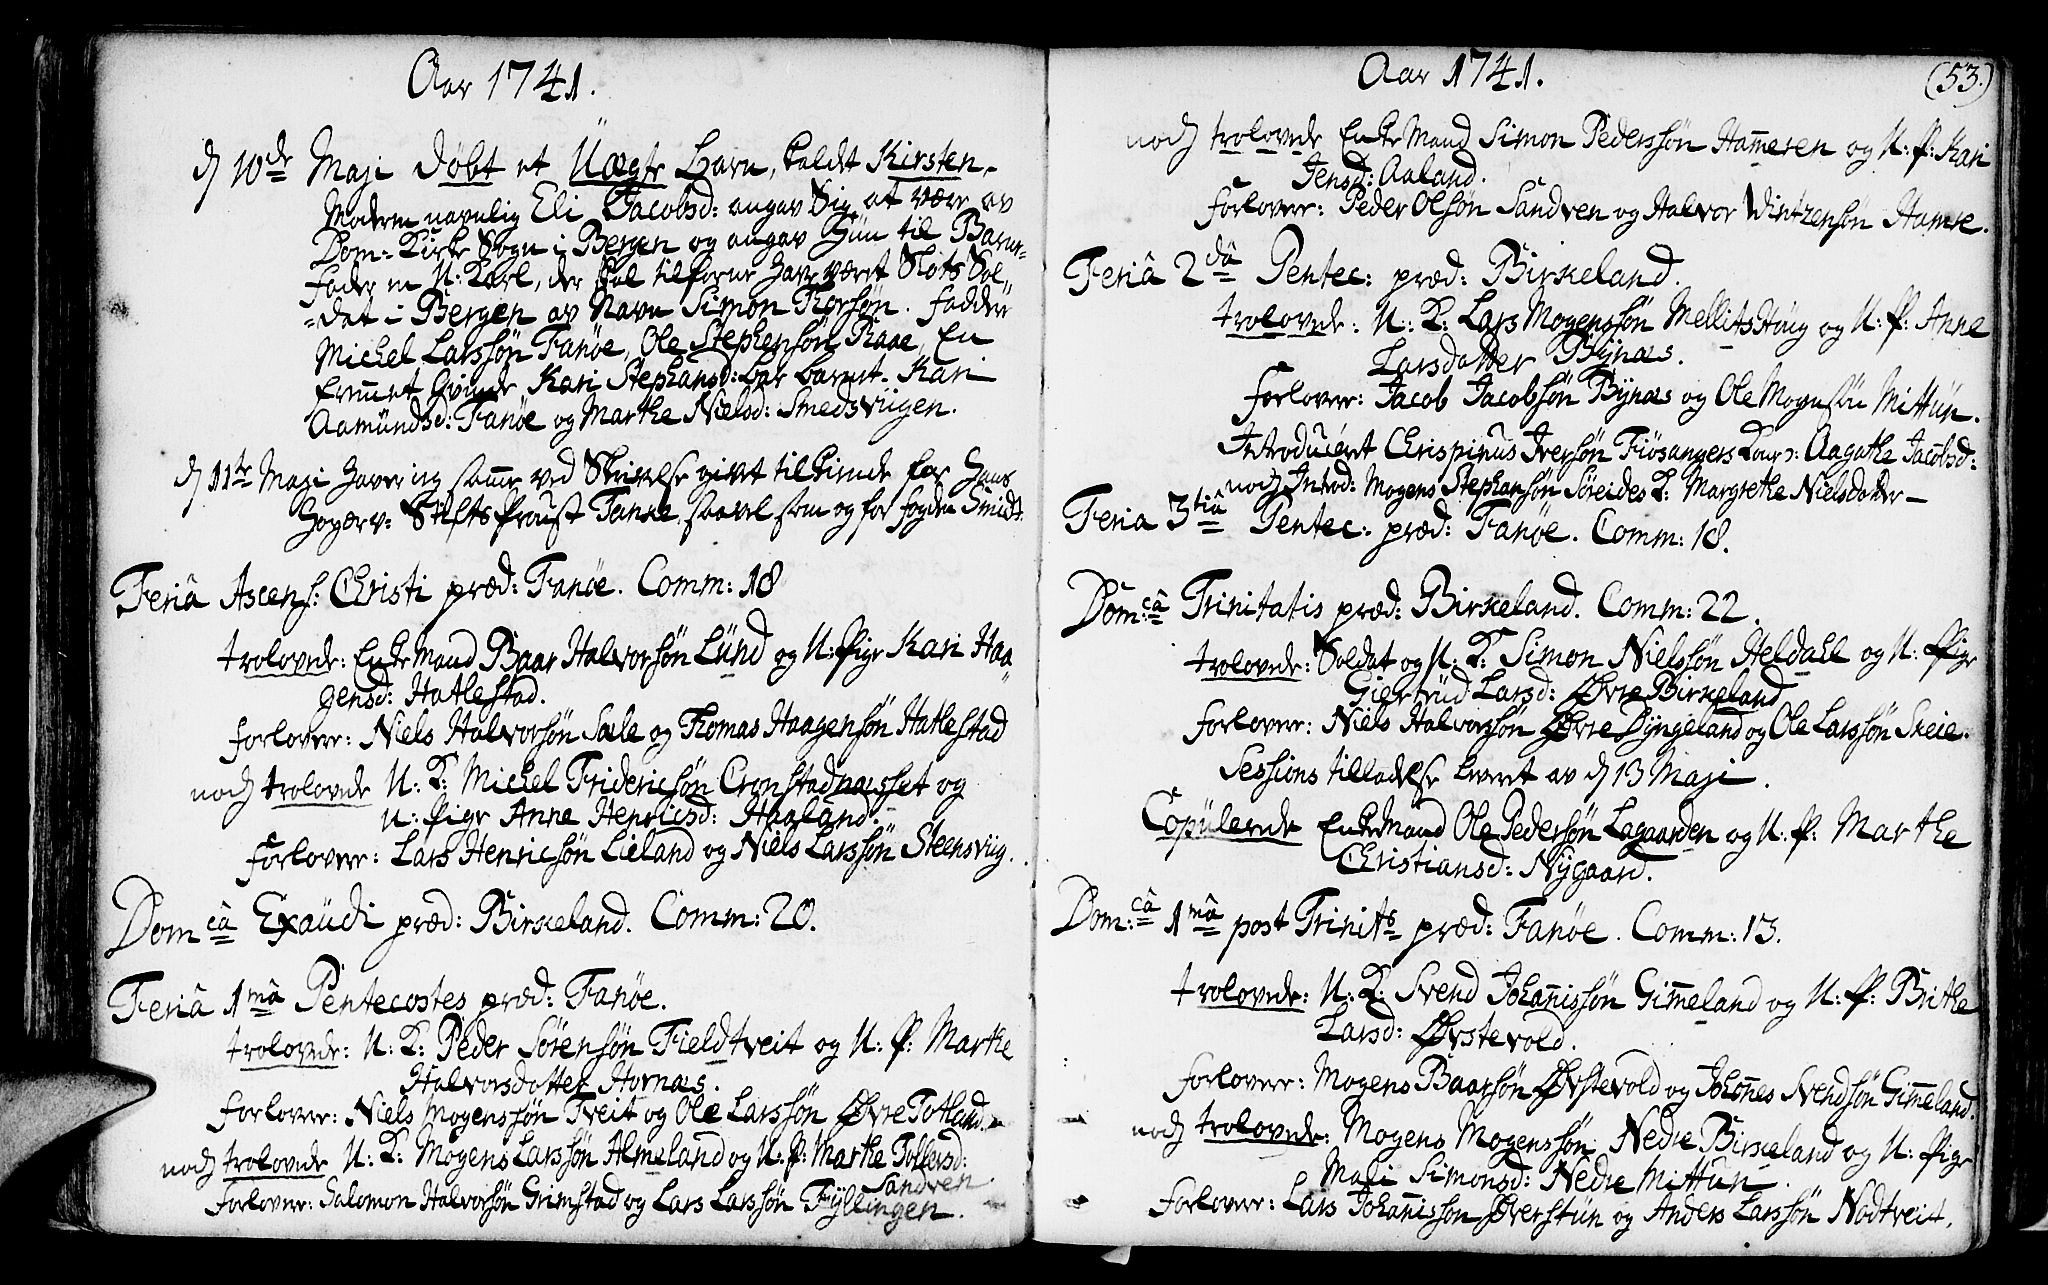 Aar 1741.
d 10de Maji Døbt et Uægte Barn, kaldt Kirsten,
Moderen navnlig Eli Jacobsd: angav Sig at være av
Dom-Kirke Sogn i Bergen og angav Hun til Barne-
Fader en U: Karl, der skal tilforne have været Slots Sol-
-dat i Bergen av Navn Simon Thorsøn. Fadder
Michel Larssøn Fanøe, Ole Stephensøn Raae, En
fremmet Qvinde Kari Stephansd: bar barnet. Kari
Aamundsd: Fanøe og Marthe Nielsd: Smedsviigen.
d 11te Maji haver ieg samme ved Skrivelse givet tilkiende for Hans
Høyærv: Stifts Proust Tanke, saavel som og for fogden Smidt
Feriâ Ascens: Christi præd: Fanøe. Comm: 18
trolovede: Enke Mand Baar Halvorsøn Lünd og U: Pige Kari Haa
gensd: Hatlestad.
forlovere: Niels Halvorsøn Sæle og Thomas Haagensøn Hatlestad
nock trolovede U: K: Michel Fridericsøn Cronstadnæsset og
U: Pige Anne Henricsd: Haaland.
forlovere: Lars Henricsøn Lieland og Niels Larssøn Steensviig.
Domcâ Exaüdi præd: Birkeland. Comm: 20.
Feriâ 1mâ Pentecostes præd: Fanøe.
trolovede: U: K: Peder Sörensøn Fieldtveit og U: P: Marthe
Halvorsdotter Hornæs.
forlovere: Niels Mogenssøn Tveit og Ole Larssøn Øvre Totland.
nock trolovede U: K: Mogens Larssøn Almeland og U: P: Marthe Tollefsd:
Sandven
forlovere: Salomon Halvorsøn Grimstad og Lars Larssøn Fyllingen.
Aar 1741.
(53.)
nock trolovede Enke Mand Simon Pederssøn Hameren og U: P: Kari
Jensd: Aaland.
forlovere: Peder Olsøn Sandven og Halvor Wintzensøn Hamre.
Feriâ 2dâ Pentec: præd: Birkeland.
trolovede: U: K: Lars Mogenssøn MellitsHüg og U: P: Anne
Larsdotter Bÿnæs.
forlovere: Jacob Jacobsøn Bÿnæs og Ole Monssøn Mittün.
Introduceret Chrispinus Iversøn Fiösangers Kone: Aagathe Jacobsd:
nock Introd: Mogens Stephansøn Søreides K: Margrethe Nielsdotter
Feriâ 3tiâ Pentec: præd: Fanøe. Comm: 18.
Dom:câ Trinitatis præd: Birkeland. Comm: 22.
trolovede: Soldat og U: K: Simon Nielssøn Heldahl og U: Pige
Giertrüd Larsd: Øvre Birkeland
forlovere: Niels Halvorssøn Øvre Ddÿngeland og Ole Larssøn Skeie.
Sessions tilladelse leveret av d 13 Maji.
Copülerede EnkeMand Ole Pedersøn Lagaarden og U: P: Marthe
Christiansd: Nÿgaard.
Dom:câ 1mâ post Trinits præd: Fanøe. Comm: 13.
trolovede: U: K: Svend Johañissøn Gim̄eland og U: P: Brithe
Larsd: Øvstevold.
forlovere: Mogens Baarsøn Øvstevold og Johañes Svendsøn Gim̄eland.
nock trolovede: Mogens Mogenssøn Nedre Birkeland og U: Pige
Mari Simonsd: Nedre Mittün.
forlovere: Lars Johañissøn Øverstün og Anders Larssøn Nodtveit.